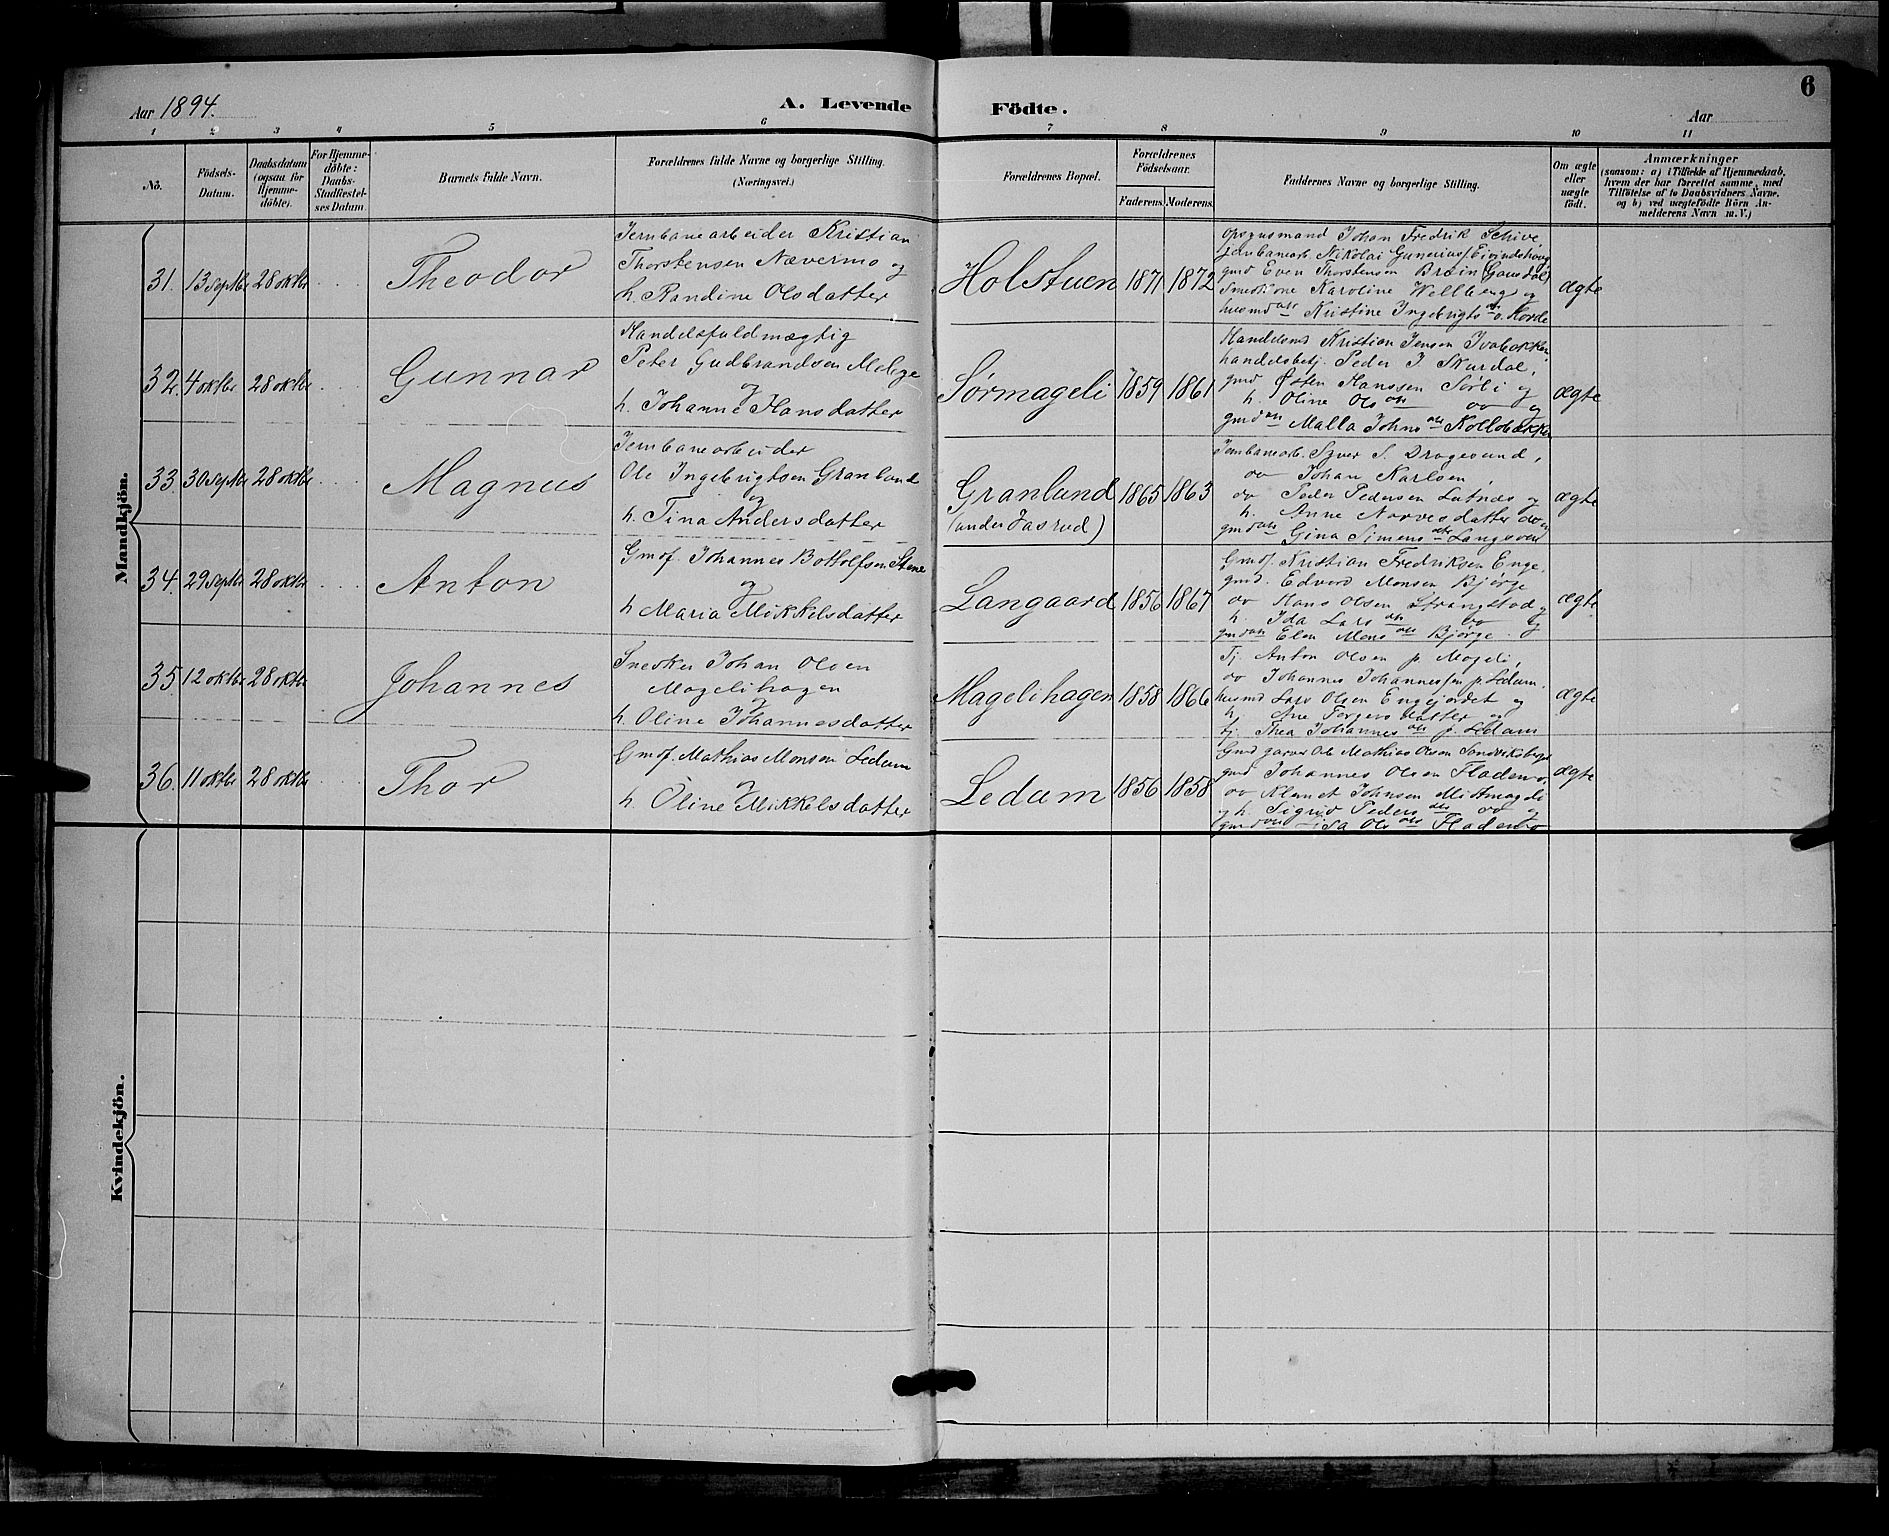 6
Aar 1894.
A. Levende Födte.
Aar
1 2 3 4 5 6 7 8 9 10 11
Nö.
Födsels-
Datum.
Daabsdatum
(ogsaa for
Hjemme-
döbte).
For Hjemme-
döbte:
Daabs-
Stadfæstel-
ses Datum
Barnets fulde Navn.
Forældrenes fulde Navne og borgerlige Stilling.
(Næringsvei.)
Forældrenes Bopæl.
Forældrenes
Födselsaar.
Faderens.
Moderens.
Faddernes Navne og borgerlige Stilling.
Om ægte
eller
uægte
födt.
Anmærkninger
(saasom: a) i Tilfælde af Hjemmedaab,
hvem der har forrettet samme, med
Tilföielse af to Daabsvidners Navne,
og b) ved uægtefödte Börn An-
melderens Navn m. V.)
Mandkjön.
31. 13 septbr 28 oktbr
Theodor
Jernbanearbeider Kristian
Thorstensen Nævermo og
h. Randine Olsdatter
Holstuen 1871 1872
opsynsmand Johan Fredrik Schive,
jernbanearb. Nikolai Gunerius Eivindshaug
gmd Even Thorstensen Bræin (Gausdal)
Smedkone Karoline Wellberg og
husmd Kristine Ingebrigts
ægte
32. 4 oktbr 28 oktbr
Gunnar
Handelsfuldmægtig
Peter Gudbrandsen Melige
og
h. Johanne Hansdatter
Sørmageli 1859 1861
Handelsmd Kristian Jensen
handelsbetj. Peder J. Skurdal,
gmd Østen Hanssen Sørli og
h. Oline Ols dtr do og
gmd dtr Malla Johns dtr Kollobækken
ægte
33. 30 septbr 28 oktbr
Magnus
Jernbanearbeider
Ole Ingebrigtsen Granlund
og
h. Tina Andersdatter
Granlund 1865 1863
(under Jasrud)
Jernbanearb. Syver S. Dragesund,
do Johan Karlsen,
do Peder Pedersen Lutnæs og
h. Anne Narvesdatter do og
gmd dtr Gina Simens dtr Langsved
ægte
34. 29 septbr 28 oktbr
Anton
Gmdf. Johannes Botholfsen Stene
og
h Maria Mikkelsdatter
Langaard 1856 1867
Gmdf. Kristian Fredriksen Enge,
gmd. Edvard Monsen Bjørge
do Hans Olsen Strangstad og
h. Ida Lars dtr do og
gmd dtr Elen Mens dtr Bjørge.
ægte
35. 12 oktbr 28 oktbr
Johannes
Snedker Johan Olsen
Magelihagen
og
h. Oline Johannesdatter
Magelihagen 1858 1866
Tj. Anton Olsen p. Mageli,
do Johannes Johannessen p. Ledum,
husmd Lars Olsen Engejordet og
h. Ane Torgersdatter og
tj. Thea Johannes dtr p. Ledum
ægte
36. 11 oktbr 28 oktbr
Thor
Gmdf. Mathias Monsen Ledum
og
h. Oline Mikkelsdatter
Ledum 1856 1858
Gmd garver Ole Mathias Olsen
gmd Johannes Olsen Flademo,
do Klanet Johnsen Midtmageli
og h. Sigrid Peders dtr do og
gmd dtr Lisa Ols dtr Flademo
ægte
Kvindekjön.